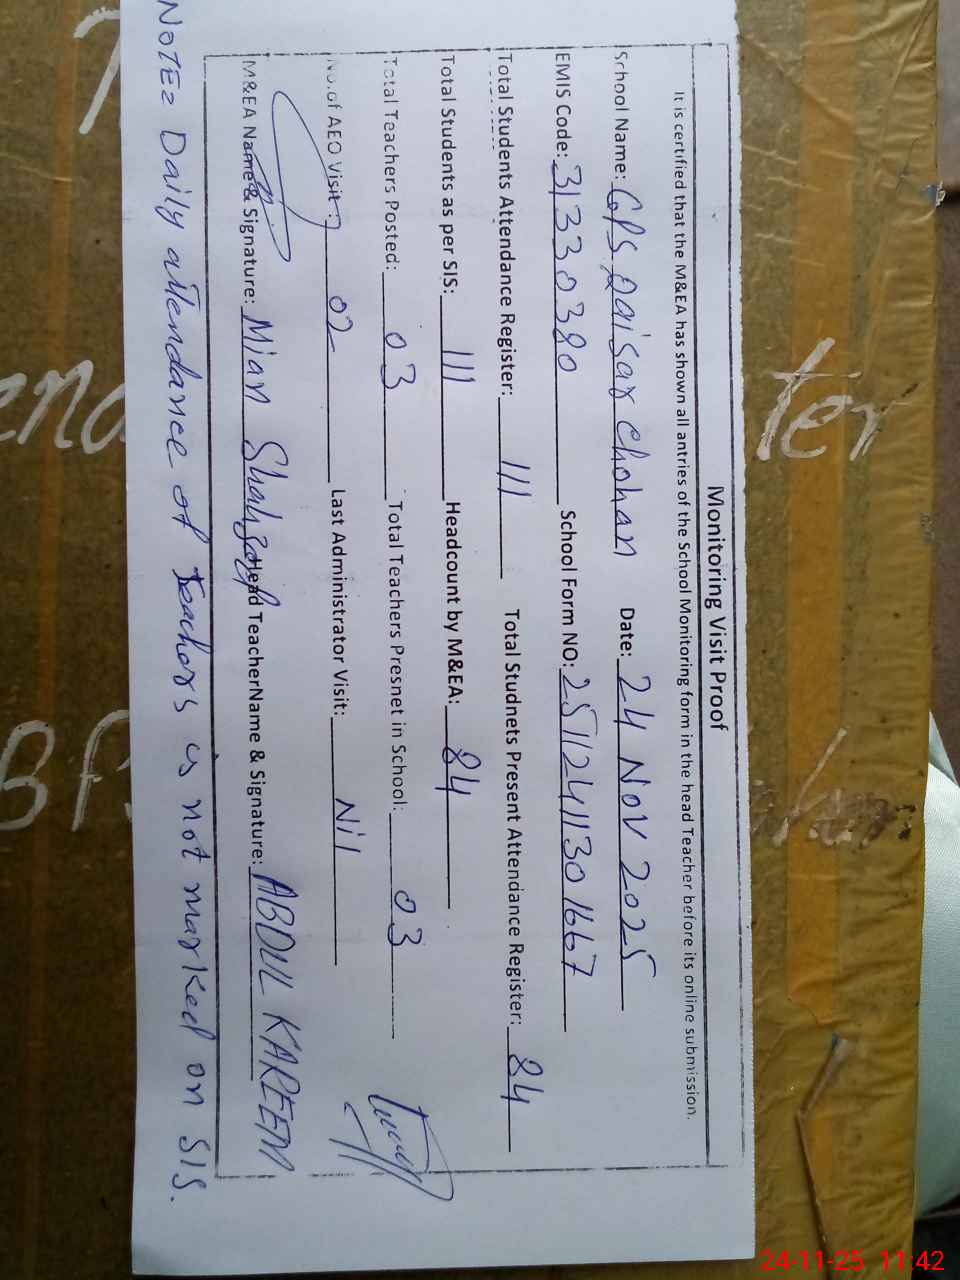 Monitoring Visit Proof
It is certified that the M&EA has shown all antries of the School Monitoring form in the head Teacher before its online submission.
School Name: GPS Qaisar Chohan Date: 24 Nov 2025
EMIS Code: 31330380 School Form NO: 25112411301667
Total Students Attendance Register: 111 Total Studnets Present Attendance Register: 84
Total Students as per SIS: 111 Headcount by M&EA: 84
Total Teachers Posted: 03 Total Teachers Presnet in School: 03
No.of AEO Visit: 02 Last Administrator Visit: Nil
M&EA Name & Signature: Mian Shahzad Head TeacherName & Signature: ABDUL KAREEM
NOTE: Daily attendance of teachers is not marked on SIS.
ter
24-11-25 11:42